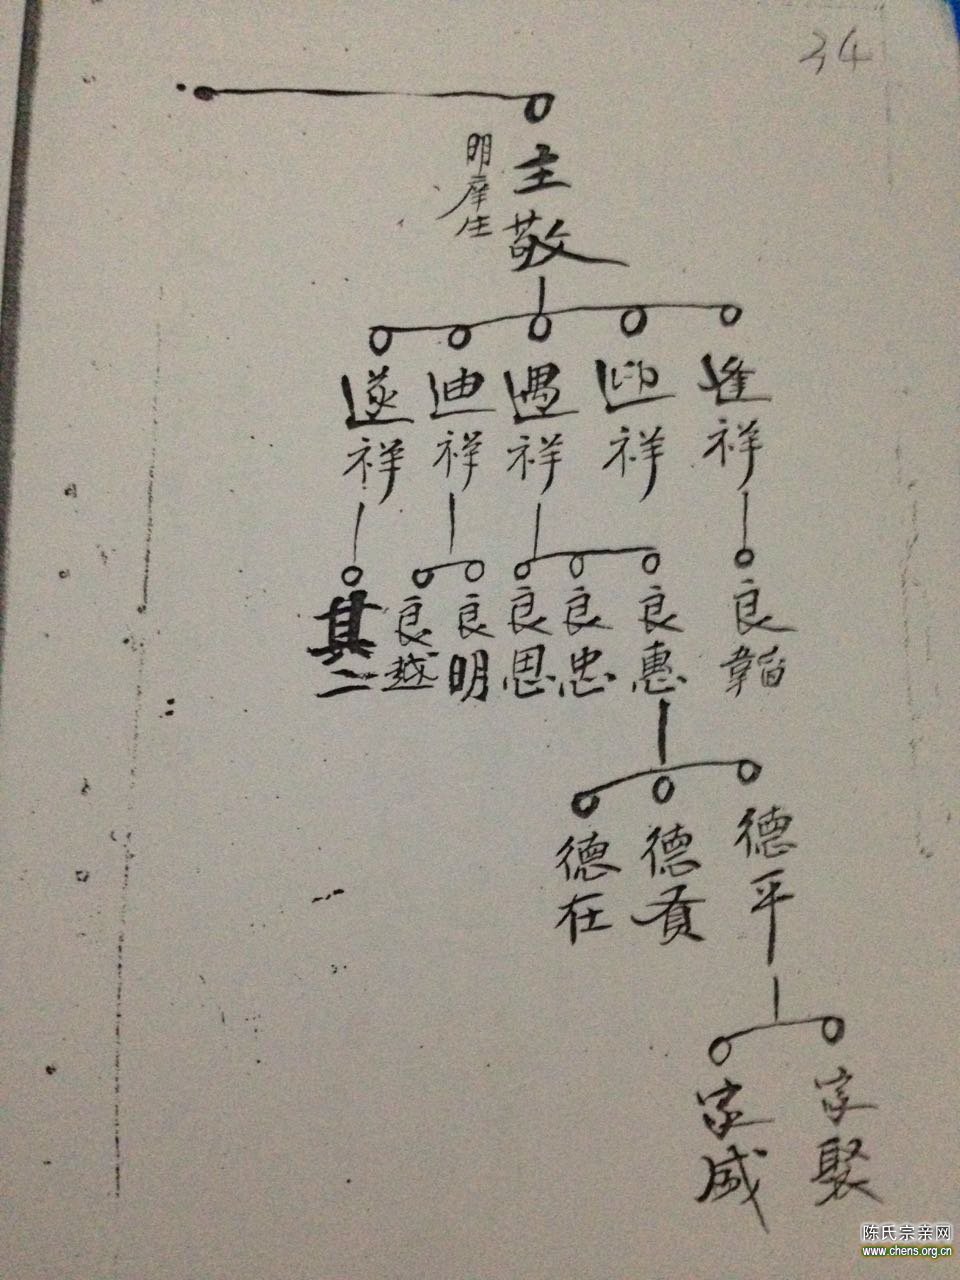 34
主敬
明庠生
逢祥
迎祥
遇祥
迪祥
遂祥
良韜
良惠
良忠
良思
良明
良越
其二
德平
德貴
德在
家聚
家威
陈氏宗亲网
www.chens.org.cn